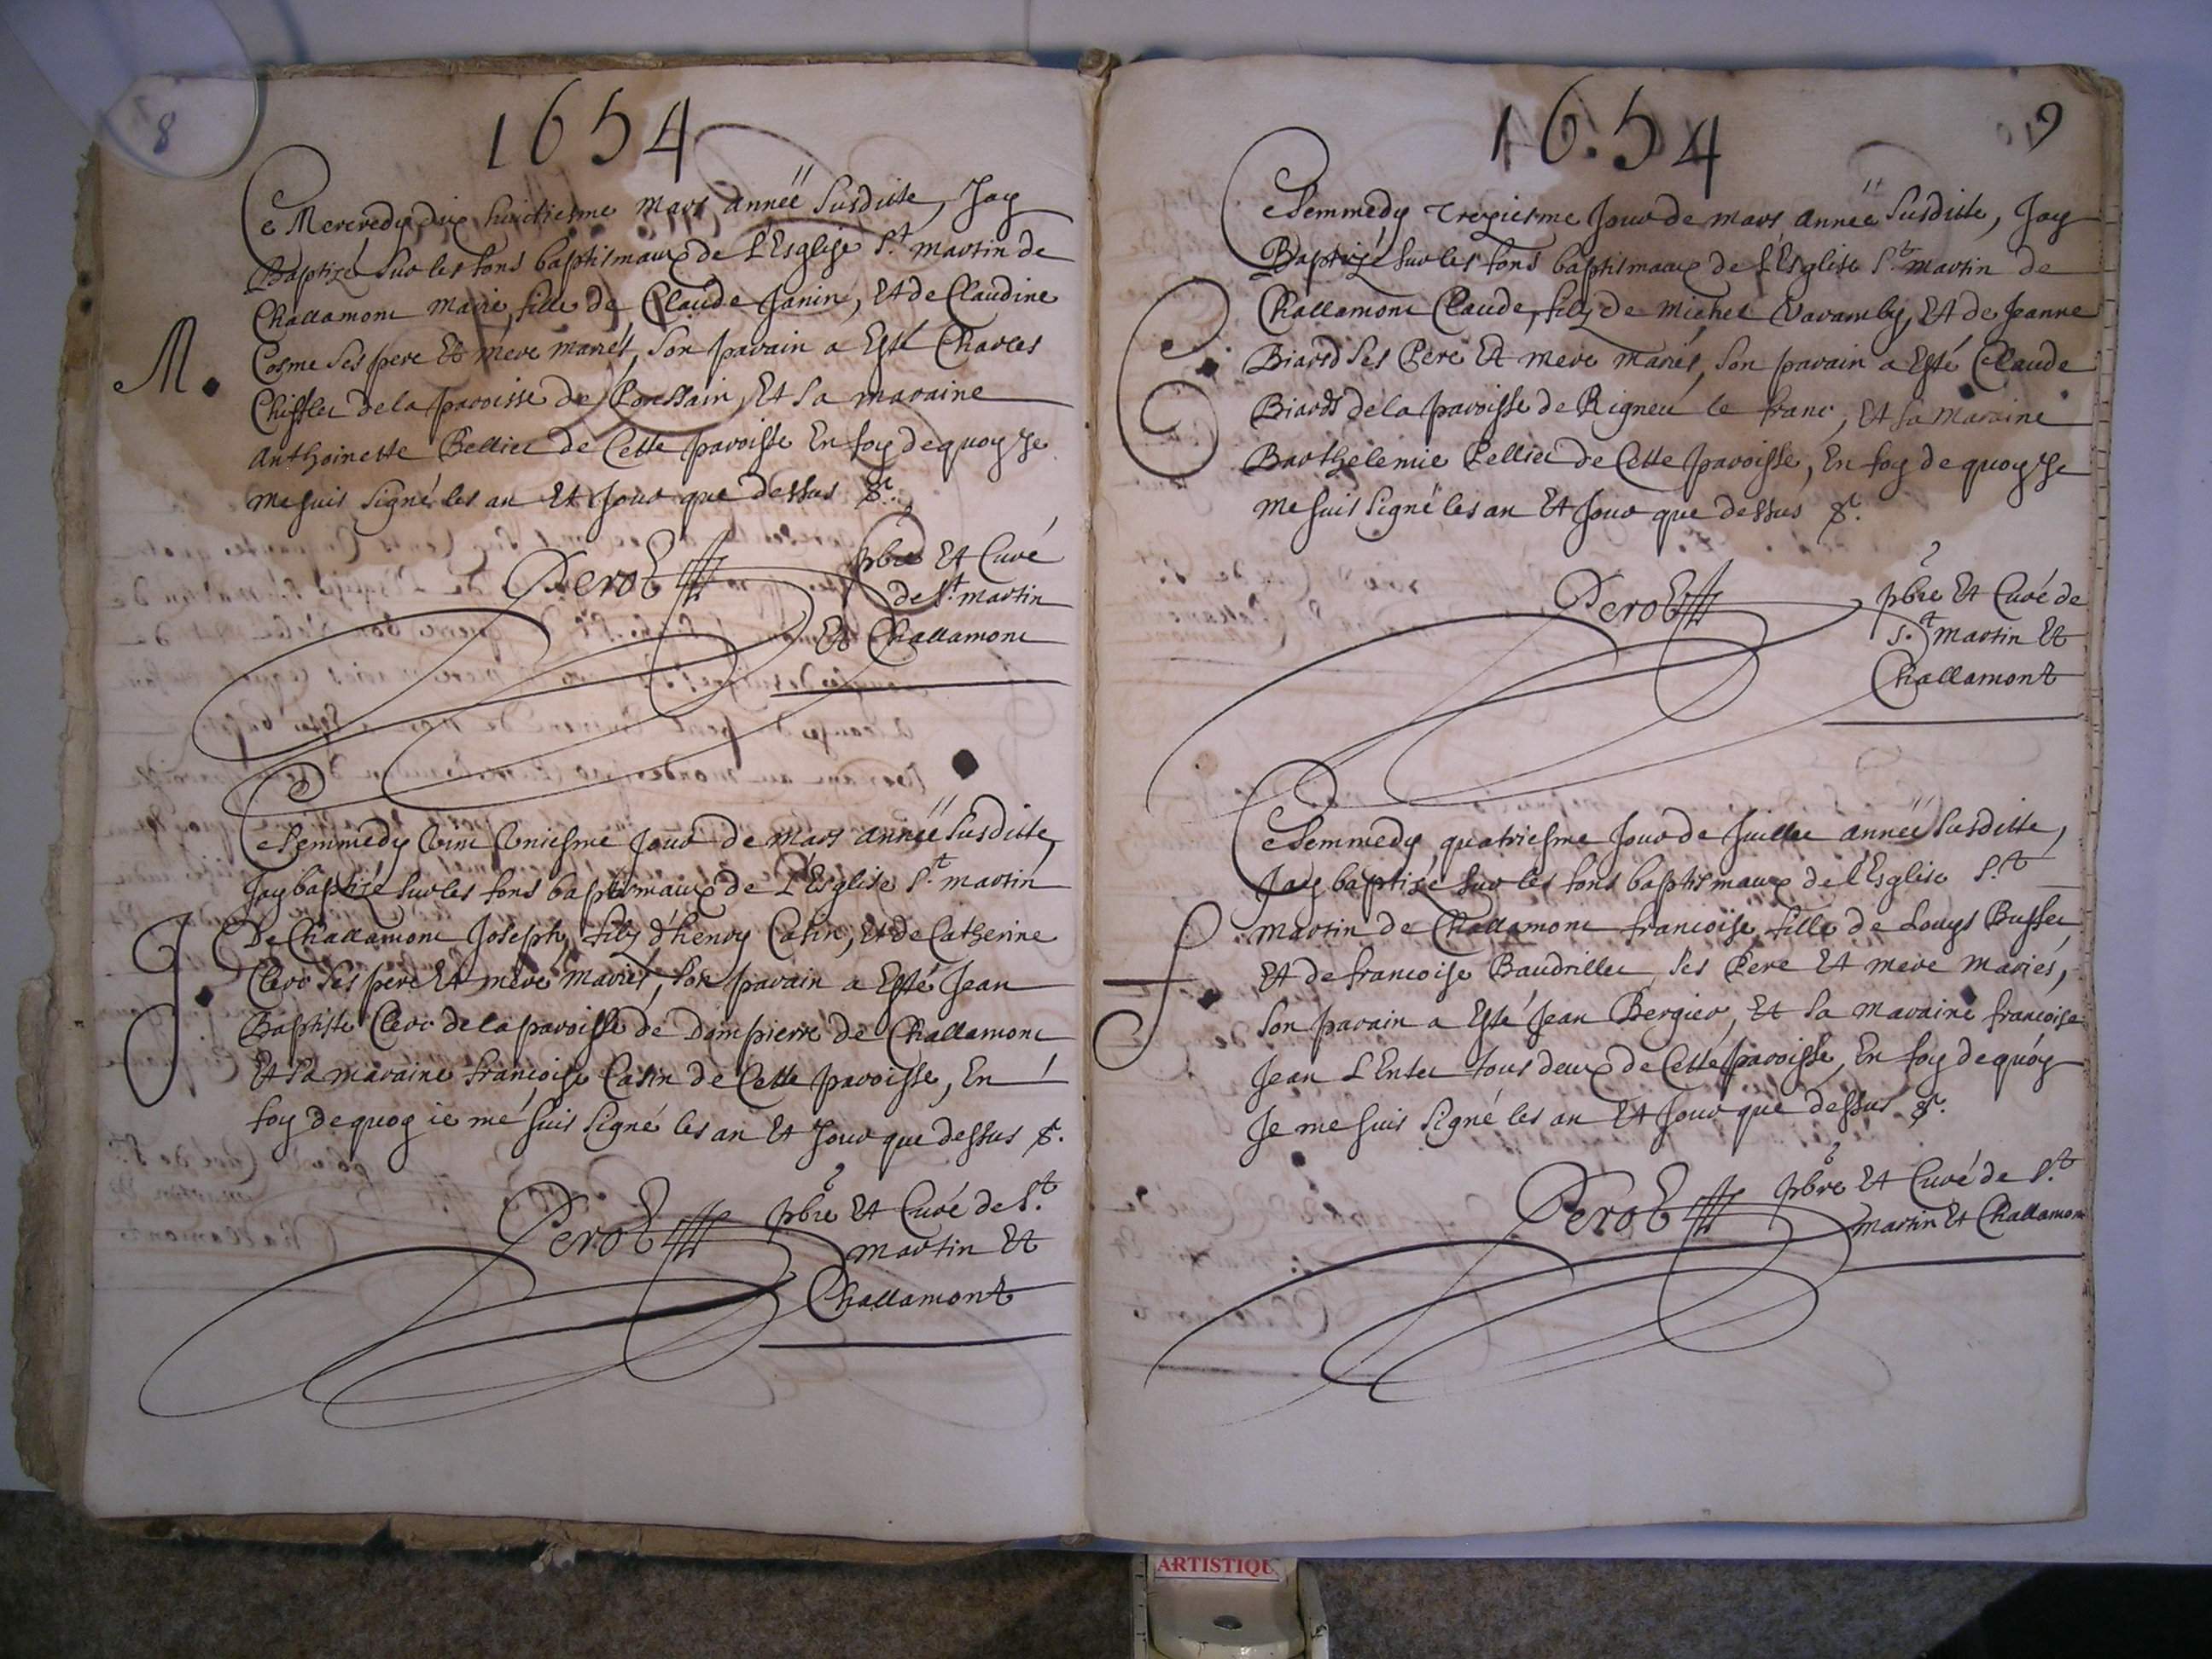 8
1654
Ce Mercredy dix huictiesme mars annéë Susditte, Jay
Baptizé Sur les fons baptismaux de L'Esglise St. martin de
Challamont marie, fille de Claude Janin, Et de Claudine
Cosme Ses pere Et mere mariés, Son parain a Esté Charles
M.
de la paroisse de Et Sa maraine
Anthoinette Pelliet de Cette paroisse En foy de quoy Je
me suis Signé les an Et Jour que dessus &.
Perot pbre Et Curé
de St. martin
Et Challamont
Ce Semmedy Vint Uniesme Jour de mars annéë Susditte,
Jay baptizé Sur les fons baptismaux de L'Esglise St. martin
De Challamont Joseph, filz d'henry Catin, Et de Catherine
J.
Clerc Ses pere Et mere mariés, Son parain a Esté Jean
Baptiste Clerc de la paroisse de Dompierre de Challamont
Et Sa maraine francoise Catin de Cette paroisse, En
foy de quoy ie me suis Signé les an Et Jour que dessus &.
Perot pbre Et Curé de St.
martin Et
Challamont
1654
9
Ce Semmedy Treziesme Jour de mars annéë Susditte, Jay
Baptizé Sur les fons baptismaux de L'Esglise St. martin de
Challamont Claude, filz de michel Et de Jeanne
C.
Biard Ses Pere Et mere mariés, Son parain a Esté Claude
Biards de la paroisse de Rigneu le franc, Et Sa Maraine
Barthelemie Pelliet de Cette paroisse, En foy de quoy Je
me suis Signé les an Et Jour que dessus &.
Perot pbre Et Curé de
St. martin Et
Challamont
Ce Semmedy quatriesme Jour de Juillet annéë Susditte,
Jay baptize Sur les fons baptismaux de l'Esglise St.
martin de Challamont francoise, fille de Louys Buffet
f.
Et de francoise Baudrillet Ses Pere Et mere mariés,
Son parain a Esté Jean Bergier, Et Sa maraine francoise
Jean L'Entet tous deux de Cette paroisse, En foy de quoy
Je me suis Signé les an Et Jour que dessus &.
Perot pbre Et Curé de St.
martin Et Challamont
ARTISTIQU